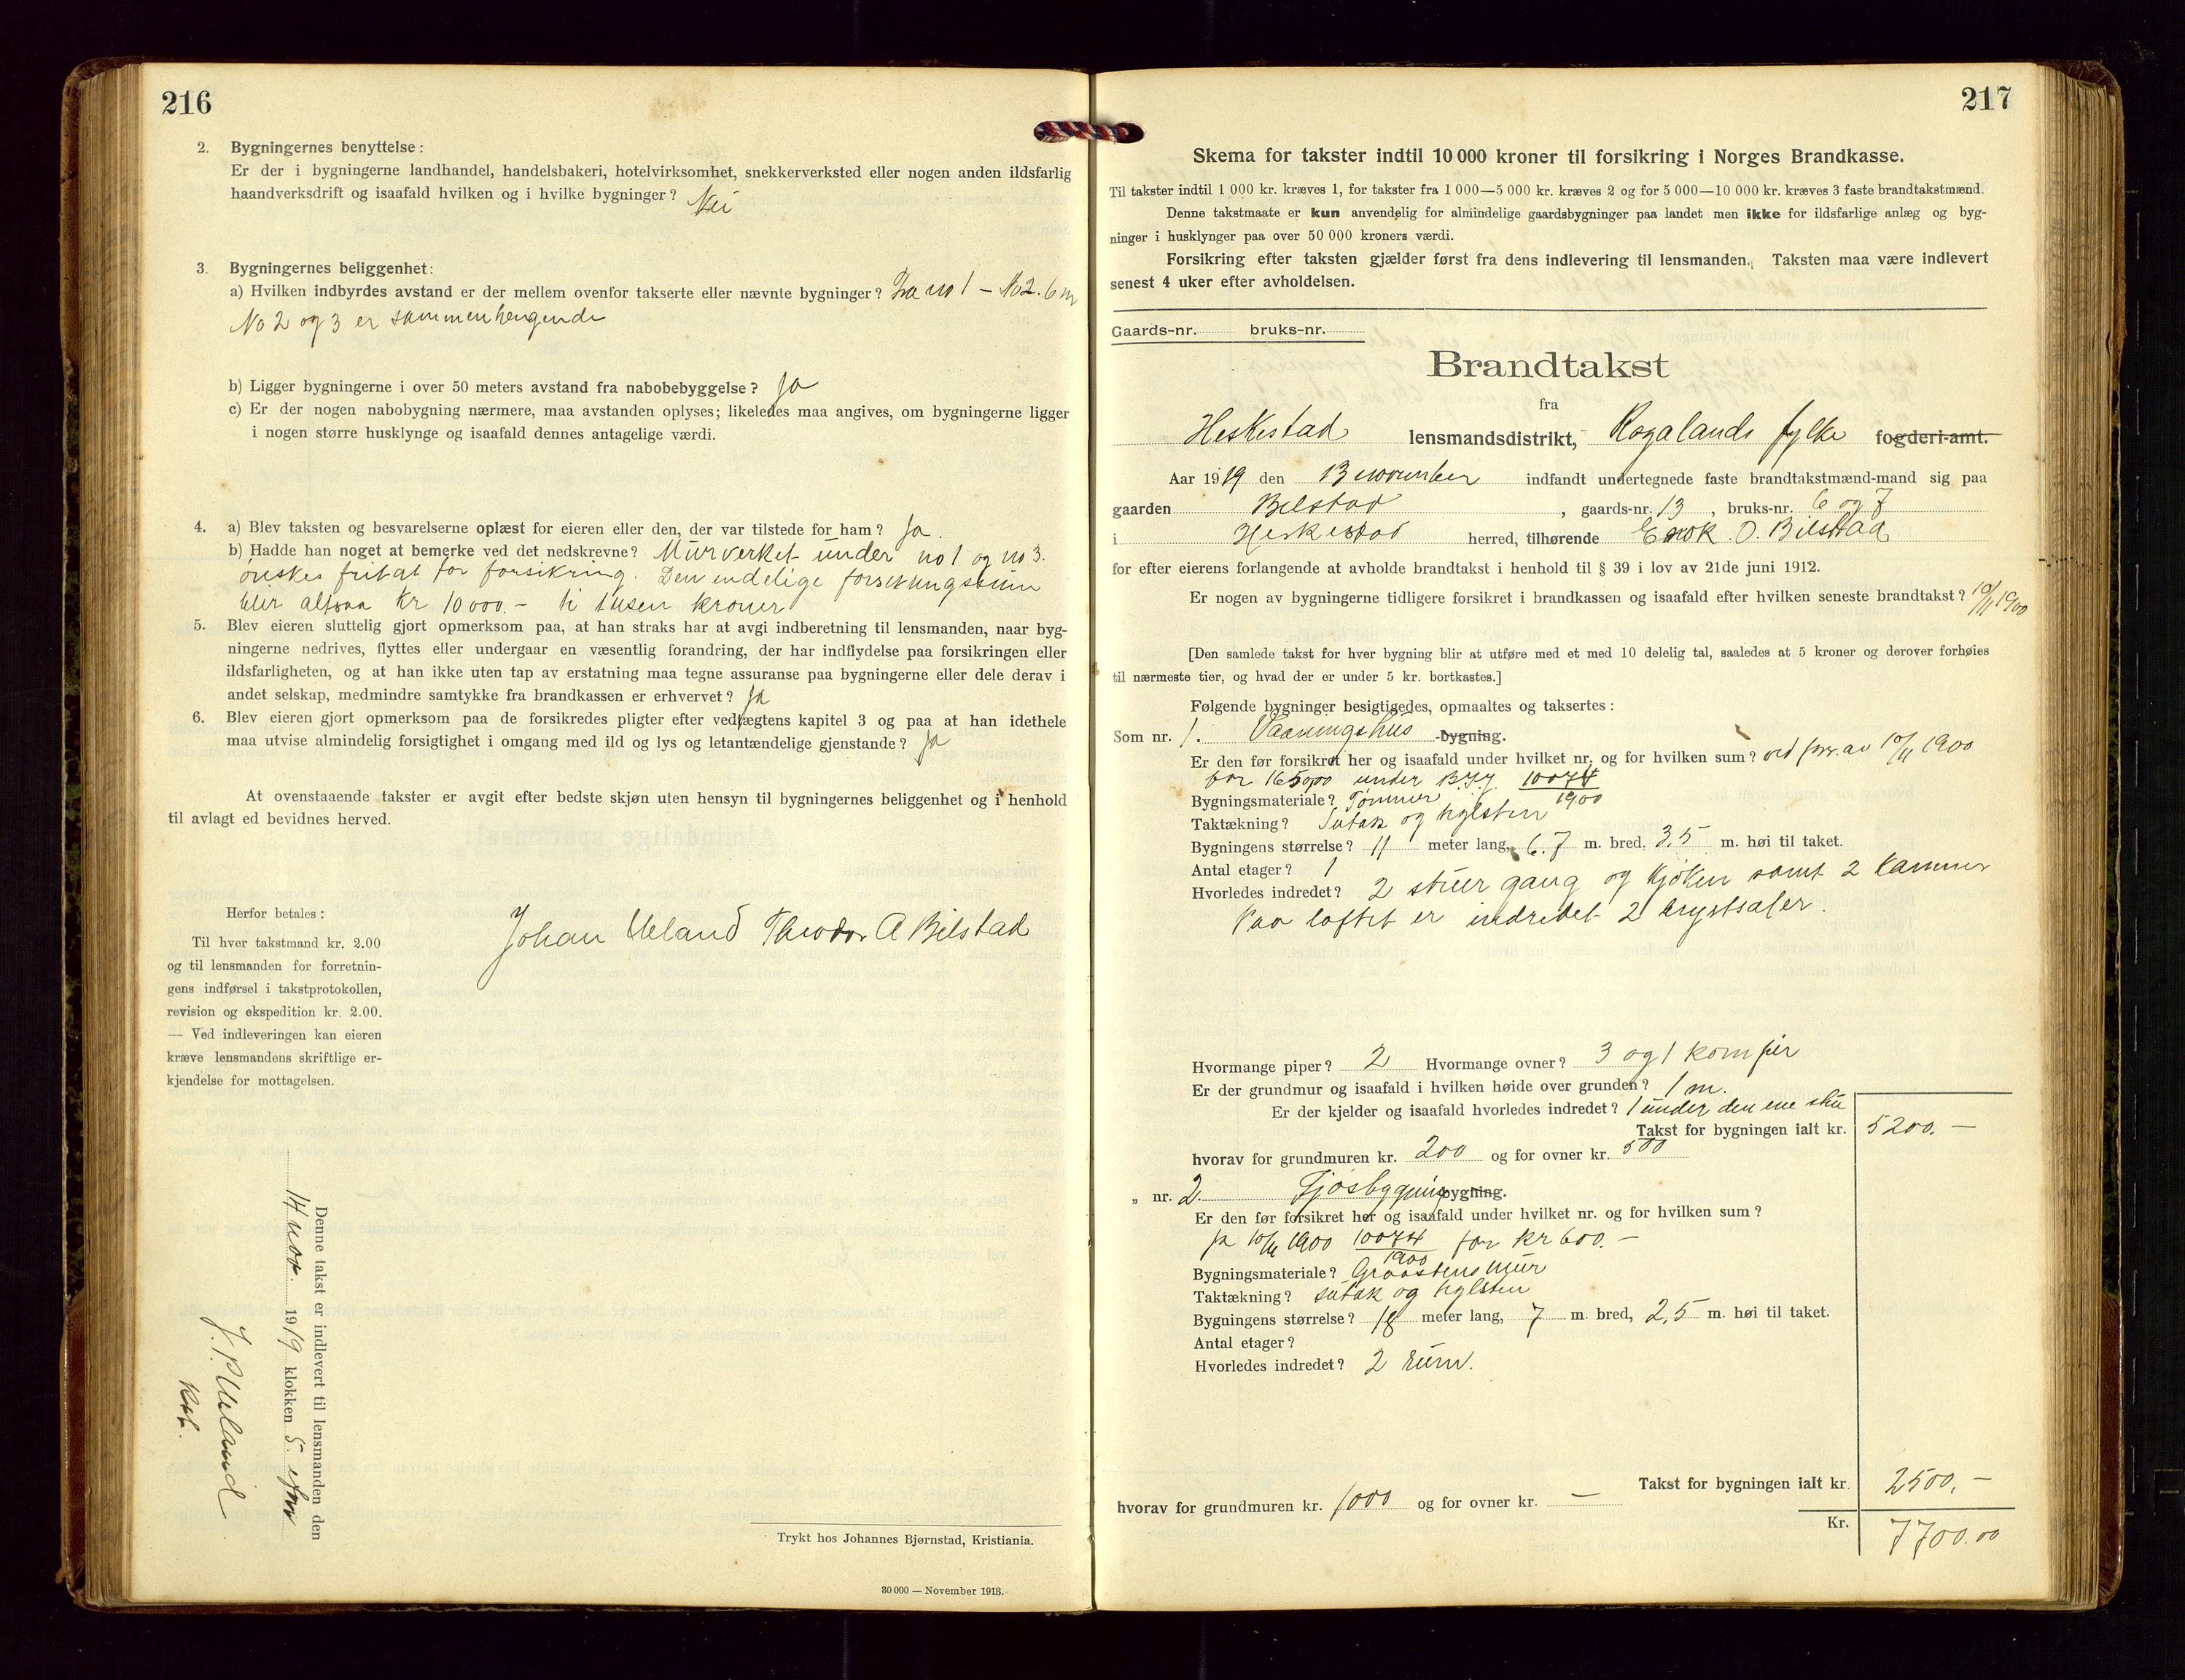 216
2. Bygningernes benyttelse:
Er der i bygningerne landhandel, handelsbakeri, hotelvirksomhet, snekkerverksted eller nogen anden ildsfarlig
haandverksdrift og isaafald hvilken og i hvilke bygninger? Nei
3. Bygningernes beliggenhet:
a) Hvilken indbyrdes avstand er der mellem ovenfor takserte eller nævnte bygninger? Fra no 1 – No 2. 6 m
No 2 og 3 er sammenhengende
b) Ligger bygningerne i over 50 meters avstand fra nabobebyggelse? Ja
c) Er der nogen nabobygning nærmere, maa avstanden oplyses; likeledes maa angives, om bygningerne ligger
i nogen større husklynge og isaafald dennes antagelige værdi.
4. a) Blev taksten og besvarelserne oplæst for eieren eller den, der var tilstede for ham? Ja.
b) Hadde han noget at bemerke ved det nedskrevne? Murverket under no 1 og no 3.
ønskes fritat for forsikring. Den endelige forsikringssum
blir altsaa Kr 10000.- ti tusen kroner
5. Blev eieren sluttelig gjort opmerksom paa, at han straks har at avgi indberetning til lensmanden, naar byg-
ningerne nedrives, flyttes eller undergaar en væsentlig forandring, der har indflydelse paa forsikringen eller
ildsfarligheten, og at han ikke uten tap av erstatning maa tegne assuranse paa bygningerne eller dele derav i
andet selskap, medmindre samtykke fra brandkassen er erhvervet? Ja
6. Blev eieren gjort opmerksom paa de forsikredes pligter efter vedtægtens kapitel 3 og paa at han idethele
maa utvise almindelig forsigtighet i omgang med ild og lys og letantændelige gjenstande? Ja
At ovenstaaende takster er avgit efter bedste skjøn uten hensyn til bygningernes beliggenhet og i henhold
til avlagt ed bevidnes herved.
Johan Ueland Theodor A Bilstad
Herfor betales:
Til hver takstmand kr. 2.00
og til lensmanden for forretnin-
gens indførsel i takstprotokollen,
revision og ekspedition kr. 2.00.
— Ved indleveringen kan eieren
kræve lensmandens skriftlige er-
kjendelse for mottagelsen.
Denne takst er indlevert til lensmanden den
14 nov. 1919 klokken 5. efm
J. P. Ueland
Trykt hos Johannes Bjørnstad, Kristiania.
30 000 — November 1913.
217
Skema for takster indtil 10 000 kroner til forsikring i Norges Brandkasse.
Til takster indtil 1 000 kr. kræves 1, for takster fra 1 000—5 000 kr. kræves 2 og for 5 000—10 000 kr. kræves 3 faste brandtakstmænd.
Denne takstmaate er kun anvendelig for almindelige gaardsbygninger paa landet men ikke for ildsfarlige anlæg og byg-
ninger i husklynger paa over 50 000 kroners værdi.
Forsikring efter taksten gjælder først fra dens indlevering til lensmanden. Taksten maa være indlevert
senest 4 uker efter avholdelsen.
Gaards-nr. bruks-nr.
Brandtakst
fra
Heskestad lensmandsdistrikt, Rogalands fylke fogderi-amt.
Aar 1919 den 13 november indfandt undertegnede faste brandtakstmænd-mand sig paa
gaarden Bilstad, gaards-nr. 13, bruks-nr. 6 og 7
i Heskestad herred, tilhørende Enok O. Bilstad
for efter eierens forlangende at avholde brandtakst i henhold til § 39 i lov av 21de juni 1912.
Er nogen av bygningerne tidligere forsikret i brandkassen og isaafald efter hvilken seneste brandtakst? 10/11 1900
[Den samlede takst for hver bygning blir at utføre med et med 10 delelig tal, saaledes at 5 kroner og derover forhøies
til nærmeste tier, og hvad der er under 5 kr. bortkastes.]
Følgende bygninger besigtigedes, opmaaltes og taksertes:
Som nr. 1. Vaaningshus bygning.
Er den før forsikret her og isaafald under hvilket nr. og for hvilken sum? ved forr. av 10/11 1900
for under 10074/1900
Bygningsmateriale? Tømmer
Taktækning? Sutak og hylsten
Bygningens størrelse? 11 meter lang, 6.7 m. bred, 3,5 m. høi til taket.
Antal etager? 1
Hvorledes indredet? 2 stuer gang og kjøken samt 2 kammer
Paa loftet er indredet 2 brystsaler.
Hvormange piper? 2 Hvormange ovner? 3 og 1 komfir
Er der grundmur og isaafald i hvilken høide over grunden? 1 m.
Er der kjelder og isaafald hvorledes indredet? 1 under den ene stu
Takst for bygningen ialt kr. 5200.—
hvorav for grundmuren kr. 200 og for ovner kr. 500
„ nr. 2 Fjøsbygning bygning.
Er den før forsikret her og isaafald under hvilket nr. og for hvilken sum?
Ja 10/11 1900 10074/1900 for Kr 600.—
Bygningsmateriale? Graastensmur
Taktækning? sutak og hylsten
Bygningens størrelse? 18 meter lang, 7 m. bred, 2,5 m. høi til taket.
Antal etager?
Hvorledes indredet? 2 rum.
Takst for bygningen ialt kr. 2500.—
hvorav for grundmuren kr. 1000 og for ovner kr. —
Kr. 7700.00